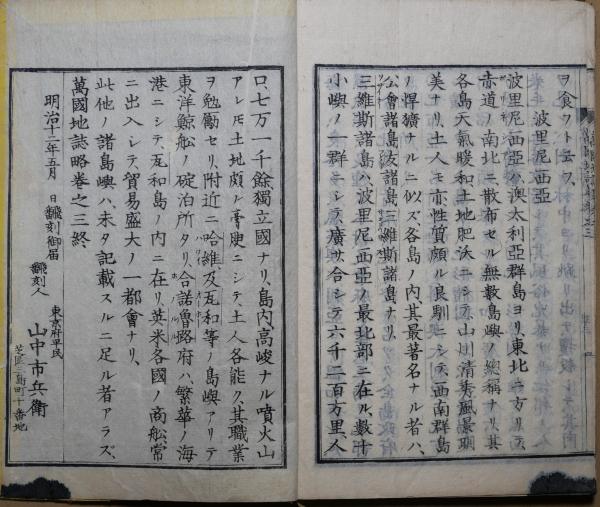 ヲ食フト云フ、
波里尼西亞
波里尼西亞ハ、澳太利亞群島ヨリ、東北ニ方リテ、
赤道ノ南北ニ散布セル、無數島嶼ノ總稱ナリ、其
各島天氣暖和、土地肥沃ニシテ、山川清秀、風景明
美ナリ、土人モ亦性質頗ル良馴ニシテ、西南群島
ノ悍獷ナルニ似ズ、各島ノ内、其最著名ナル者ハ、
公會諸島、友諸島、三維斯諸島ナリ、
三維斯諸島ハ、波里尼西亞ノ最北部ニ在ル、數十
小嶼ノ一群ニシテ、廣サ合シテ六千二百方里、人
口七万一千餘、獨立國ナリ、島内高峻ナル噴火山
アレ𪜈土地頗ル膏腴ニシテ、土人各能ク其職業
ヲ勉勵セリ、附近ニ哈維及瓦和等ノ島嶼アリテ
東洋鯨舩ノ碇泊所タリ、合諾魯路府ハ、繁華ノ海
港ニシテ、瓦和島ノ内ニ在リ、英米各國ノ商舩常
ニ出入シテ、貿易盛大ノ一都會ナリ、
此他ノ諸島嶼ハ、未タ記載スルニ足ル者アラズ、
萬國地誌略卷之三終
明治十二年五月 日飜刻御届
飜刻人 東京府平民 山中市兵衛
芝區三島町十番地